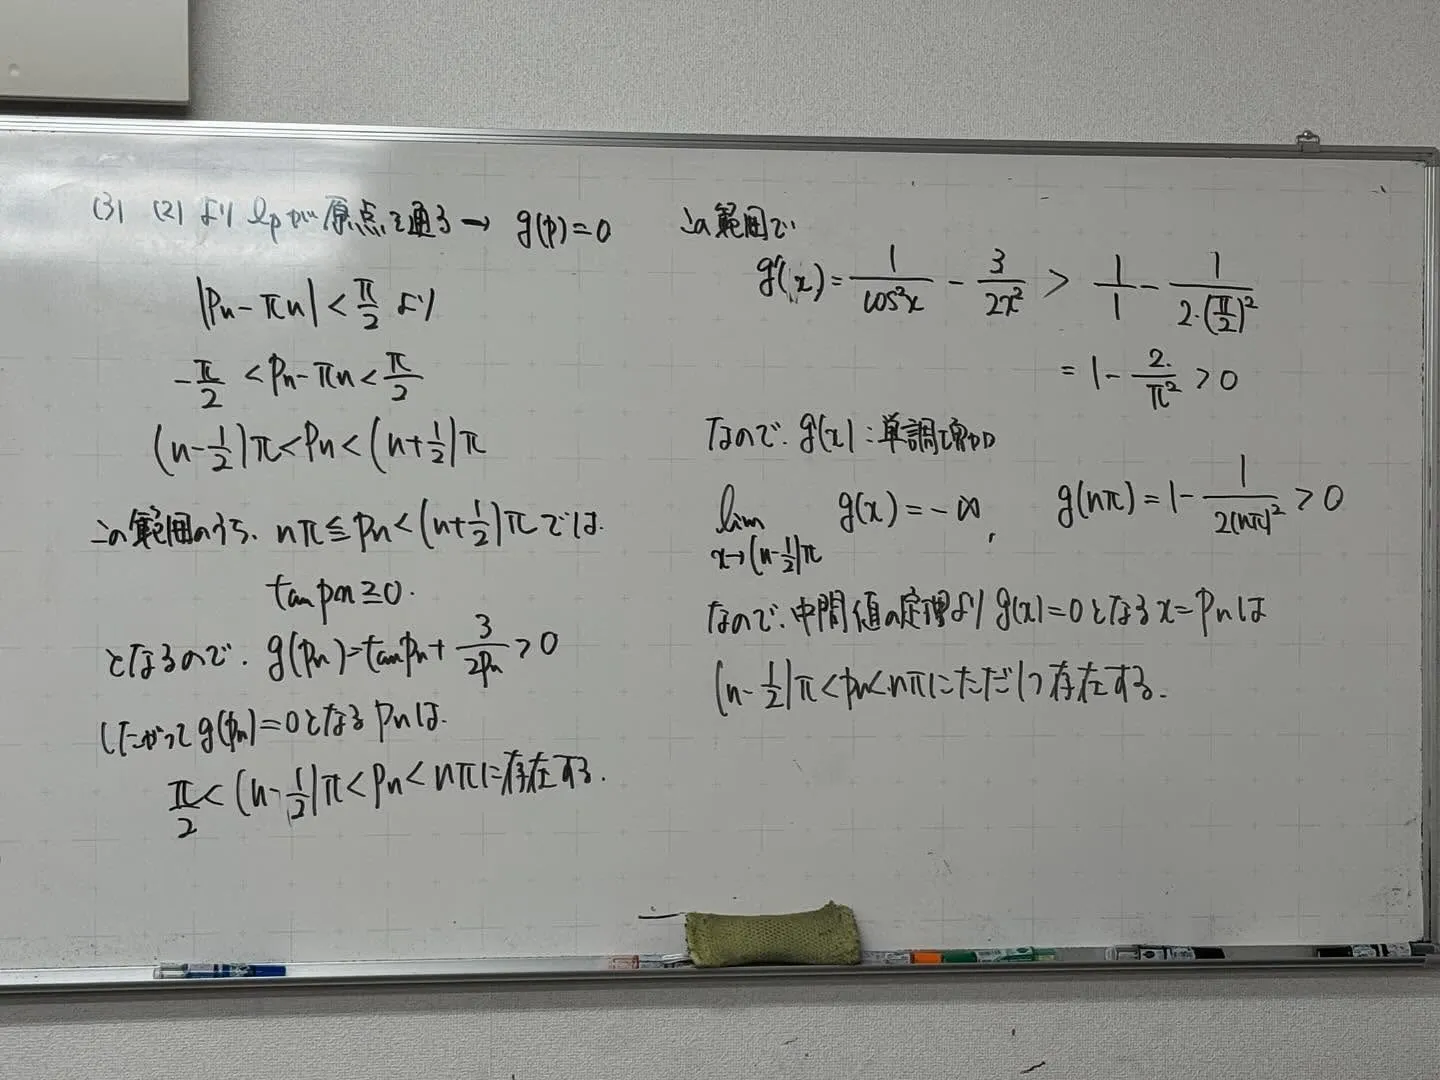 (3) (2)より lpが原点を通る→ g(p)=0
|Pn-πn|<π/2 より
-π/2 <Pn-πn<π/2
(n-1/2)π<Pn<(n+1/2)π
この範囲のうち、nπ≦pn<(n+1/2)πでは.
tan pn≥0.
となるので、g(pn)=tanpn+3/2Pn>0
したがってg(pn)=0となるPnは.
π/2<(n-1/2)π<Pn<nπに存在する.
この範囲で
g'(x)=1/cos²x - 3/2x² > 1/1 - 1/2・(π/2)²
=1-2/π²>0
なので、g(x):単調増加
lim x→(n-1/2)π g(x)=-∞, g(nπ)=1-1/2(nπ)²>0
なので、中間値の定理よりg(x)=0となるx=Pnは
(n-1/2)π<pn<nπにただ1つ存在する.